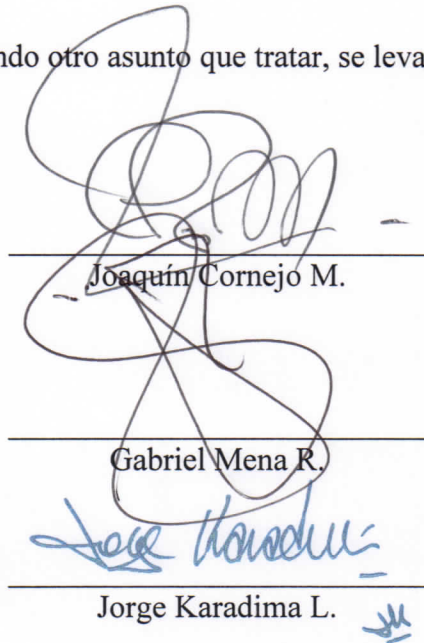 ndo otro asunto que tratar, se leva
Joaquín Cornejo M.
Gabriel Mena R.
Jorge Karadima
Jorge Karadima L.